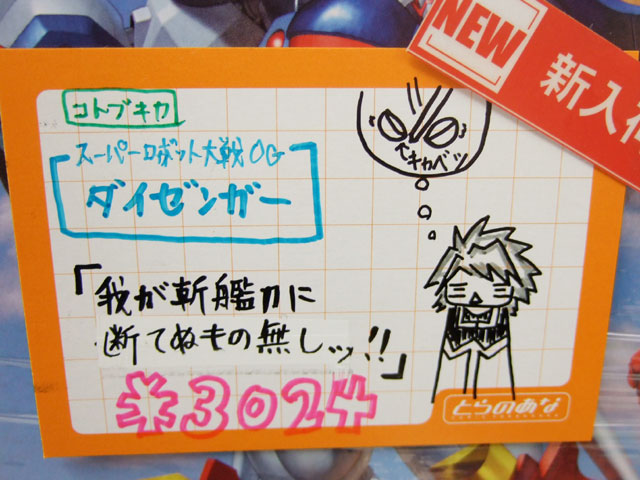 NEW
新入荷
コトブキヤ
スーパーロボット大戦OG
ダイゼンガー
↑キャベツ
「我が斬艦刀に
断てぬもの無しッ!!」
¥3024
とらのあな